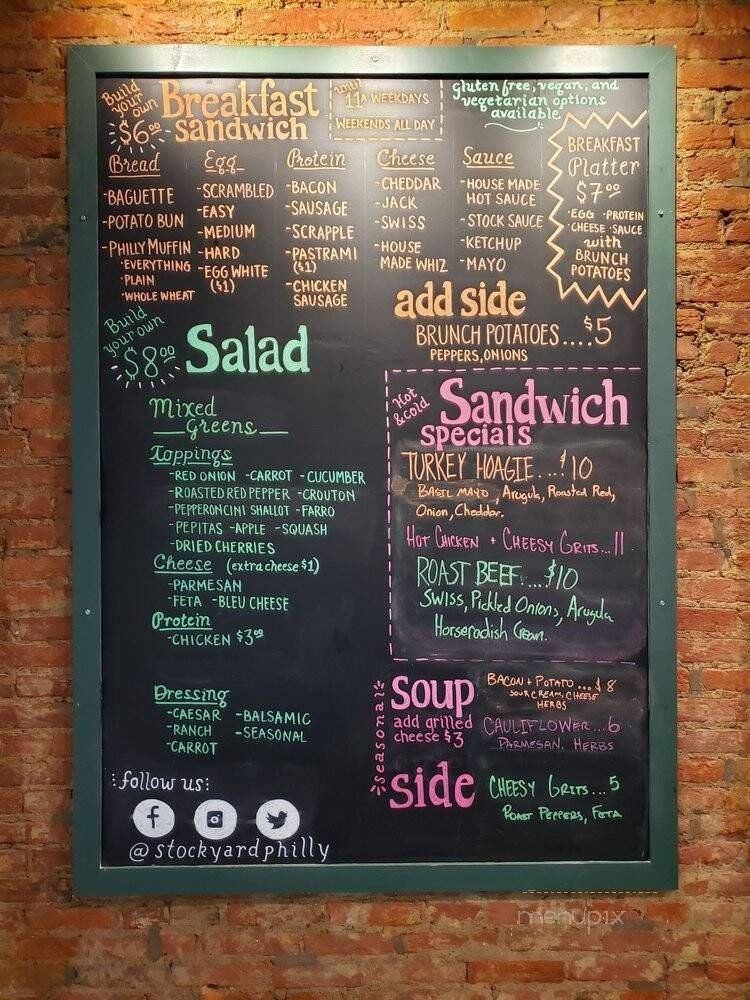 Build your own
$6.00
Breakfast
sandwich
until
11A WEEKDAYS
WEEKENDS ALL DAY
gluten free, vegan, and
vegetarian options
available
Bread
-BAGUETTE
-POTATO BUN
-PHILLY MUFFIN
·EVERYTHING
·PLAIN
·WHOLE WHEAT
Egg
-SCRAMBLED
-EASY
-MEDIUM
-HARD
-EGG WHITE
($1)
Protein
-BACON
-SAUSAGE
-SCRAPPLE
-PASTRAMI
($1)
-CHICKEN
SAUSAGE
Cheese
-CHEDDAR
-JACK
-SWISS
-HOUSE
MADE WHIZ
Sauce
-HOUSE MADE
HOT SAUCE
-STOCK SAUCE
-KETCHUP
-MAYO
BREAKFAST
Platter
$7.00
·EGG ·PROTEIN
·CHEESE ·SAUCE
with
BRUNCH
POTATOES
add side
BRUNCH POTATOES....$5
PEPPERS, ONIONS
Build
your own
$8.00
Salad
Mixed
Greens
Toppings
-RED ONION -CARROT -CUCUMBER
-ROASTED RED PEPPER -CROUTON
-PEPPERONCINI SHALLOT -FARRO
-PEPITAS -APPLE -SQUASH
-DRIED CHERRIES
Cheese (extra cheese $1)
-PARMESAN
-FETA -BLEU CHEESE
Protein
-CHICKEN $3.00
Dressing
-CAESAR -BALSAMIC
-RANCH -SEASONAL
-CARROT
follow us:
@stockyardphilly
Hot
&cold
Sandwich
specials
TURKEY HOAGIE...$10
BASIL MAYO, Arugula, Roasted Red,
Onion, Cheddar.
HOT CHICKEN + CHEESY GRITS...11
ROAST BEEF....$10
SWISS, Pickled Onions, Arugula
Horseradish Cream.
seasonal
soup
add grilled
cheese $3
BACON + POTATO...$8
SOUR CREAM, CHEESE
HERBS
CAULIFLOWER...6
PARMESAN, HERBS
side
CHEESY GRITS...5
ROAST PEPPERS, FETA
menupix